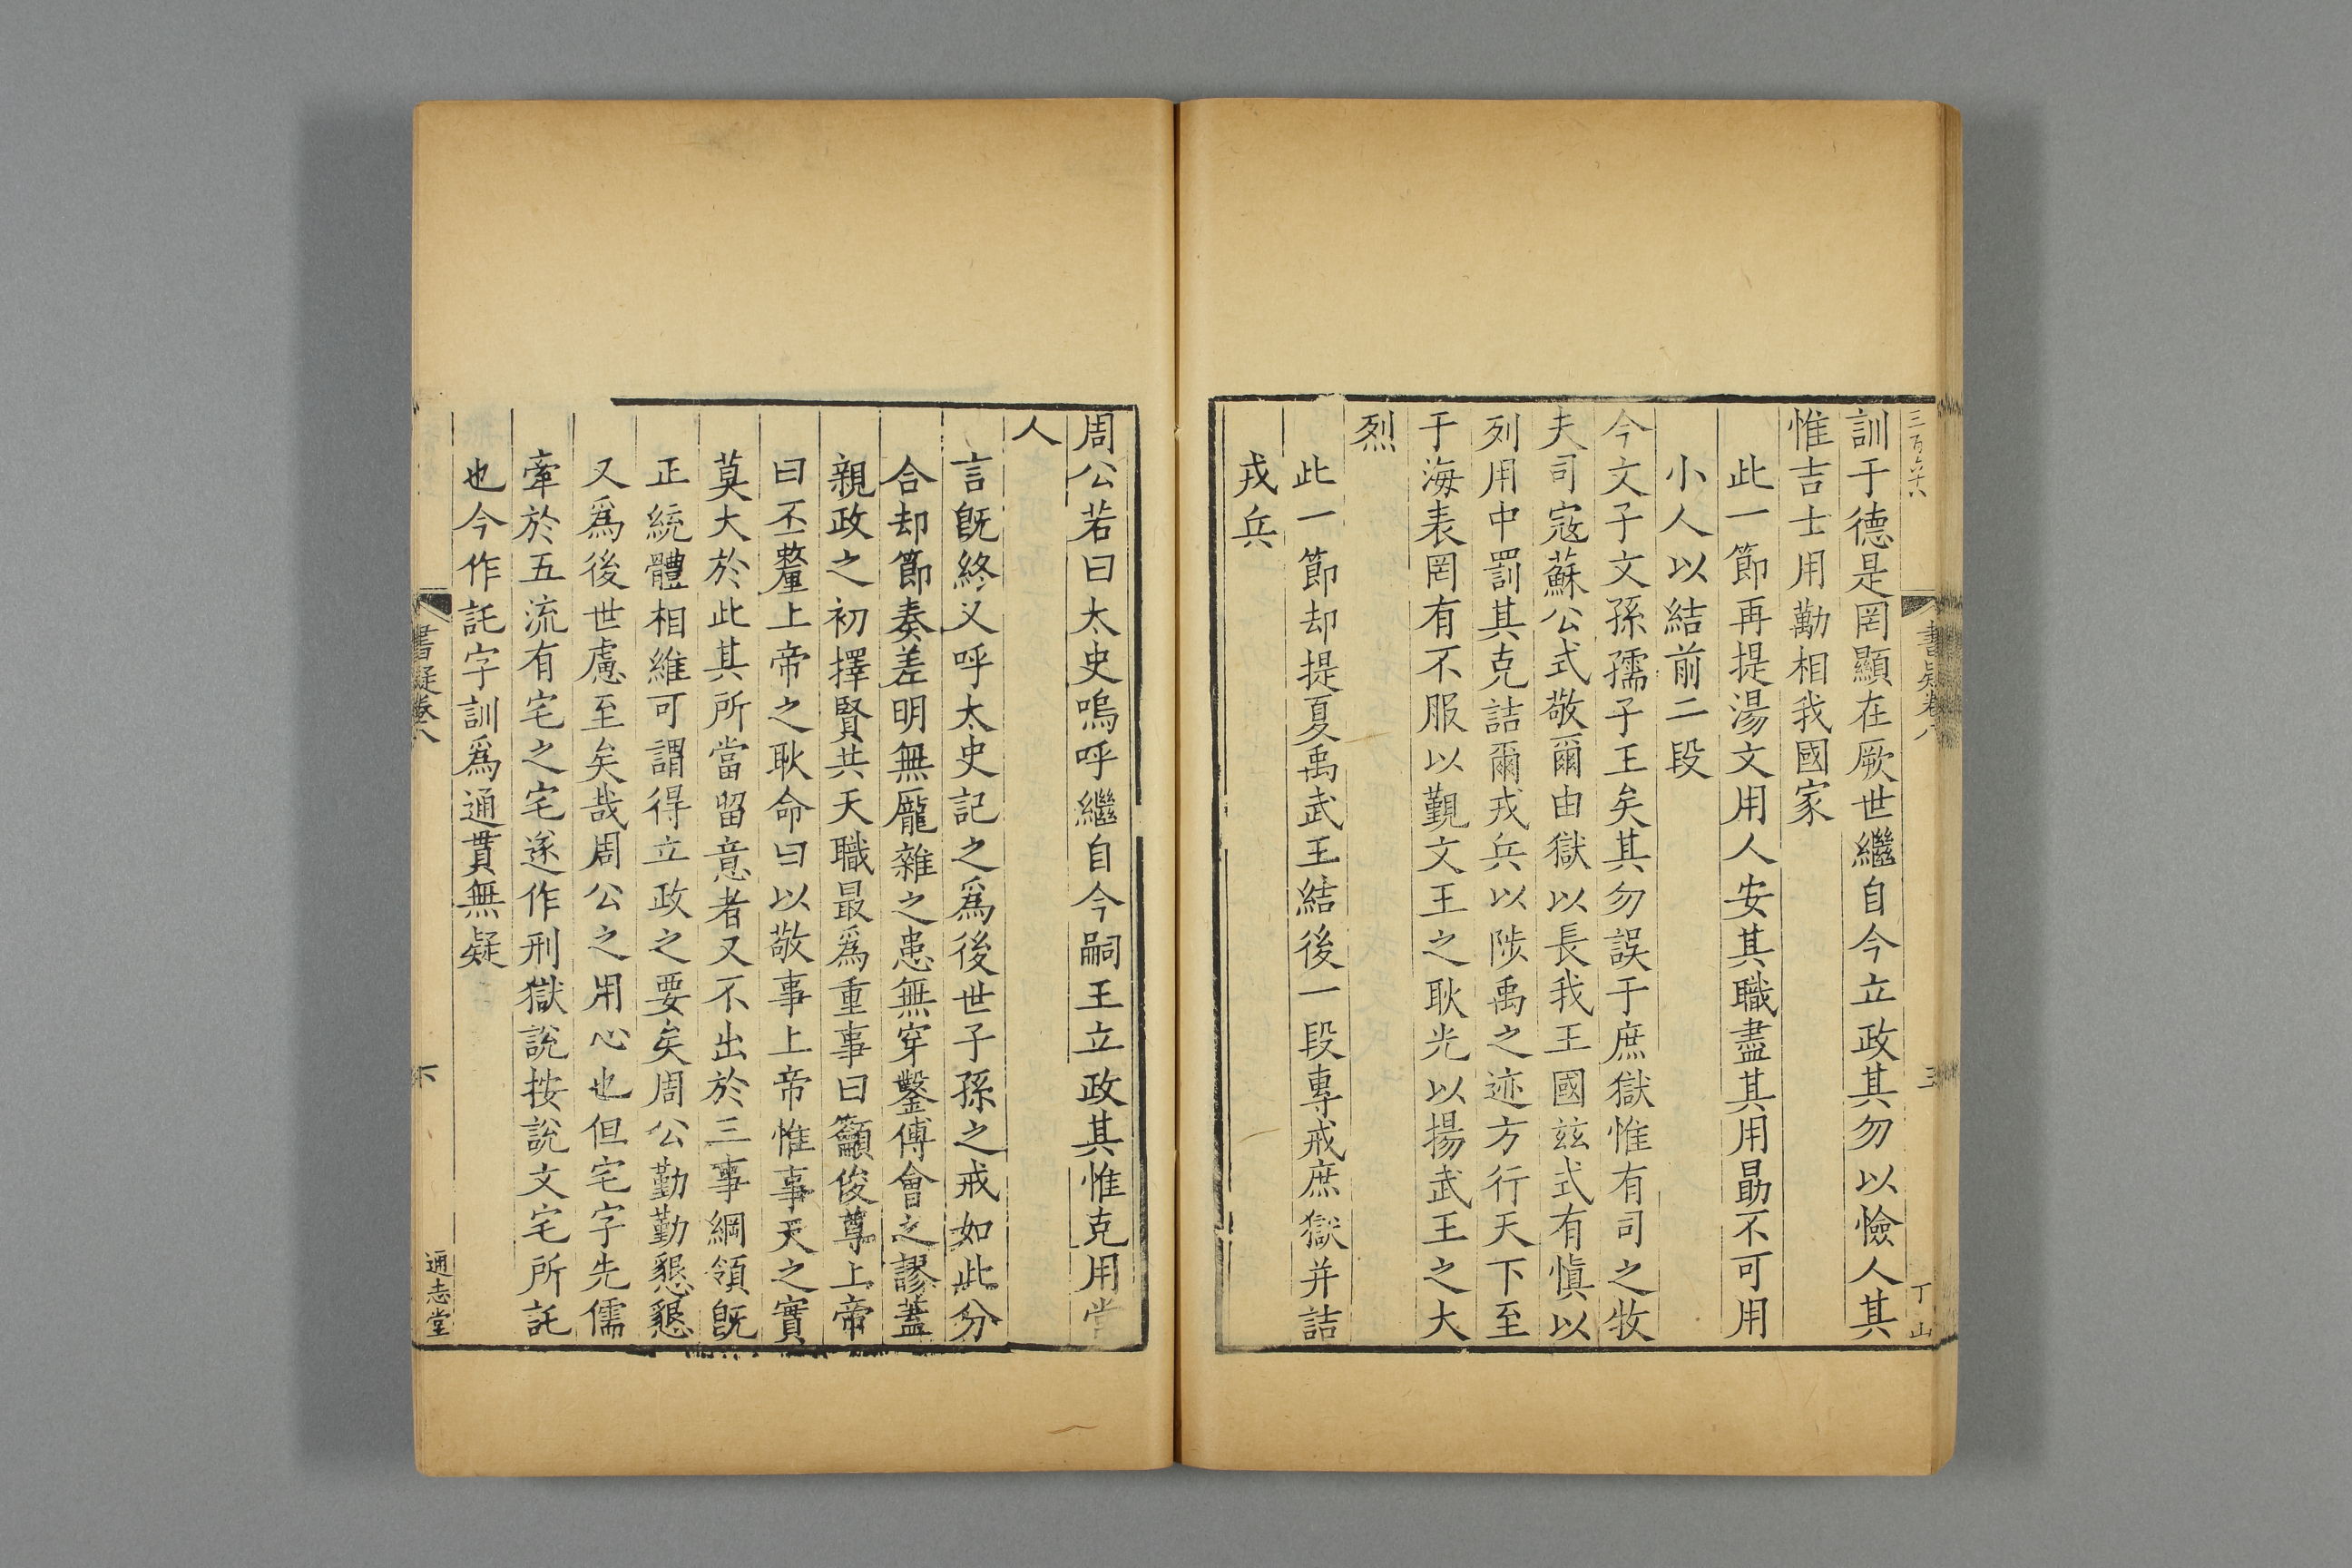 三百六六
訓于德是罔顯在厥世繼自今立政其勿以憸人其
惟吉士用勱相我國家
此一節再提湯文用人安其職盡其用勗不可用
小人以結前二段
今文子文孫孺子王矣其勿誤于庶獄惟有司之牧
夫司寇蘇公式敬爾由獄以長我王國兹式有慎以
列用中罰其克詰爾戎兵以陟禹之迹方行天下至
于海表罔有不服以覲文王之耿光以揚武王之大
烈
此一節却提夏禹武王結後一段專戒庶獄并詰
戎兵
周公若曰太史嗚呼繼自今嗣王立政其惟克用常
人
言既終又呼太史記之爲後世子孫之戒如此分
合却節奏差明無龐雜之患無穿鑿傅會之謬蓋
親政之初擇賢共天職最爲重事曰籲俊尊上帝
曰丕釐上帝之耿命曰以敬事上帝惟事天之實
莫大於此其所當留意者又不出於三事綱領既
正統體相維可謂得立政之要矣周公勤勤懇懇
又爲後世慮至矣哉周公之用心也但宅字先儒
牽於五流有宅之宅遂作刑獄說按說文宅所託
也今作託字訓爲通貫無疑
書疑卷八
通志堂